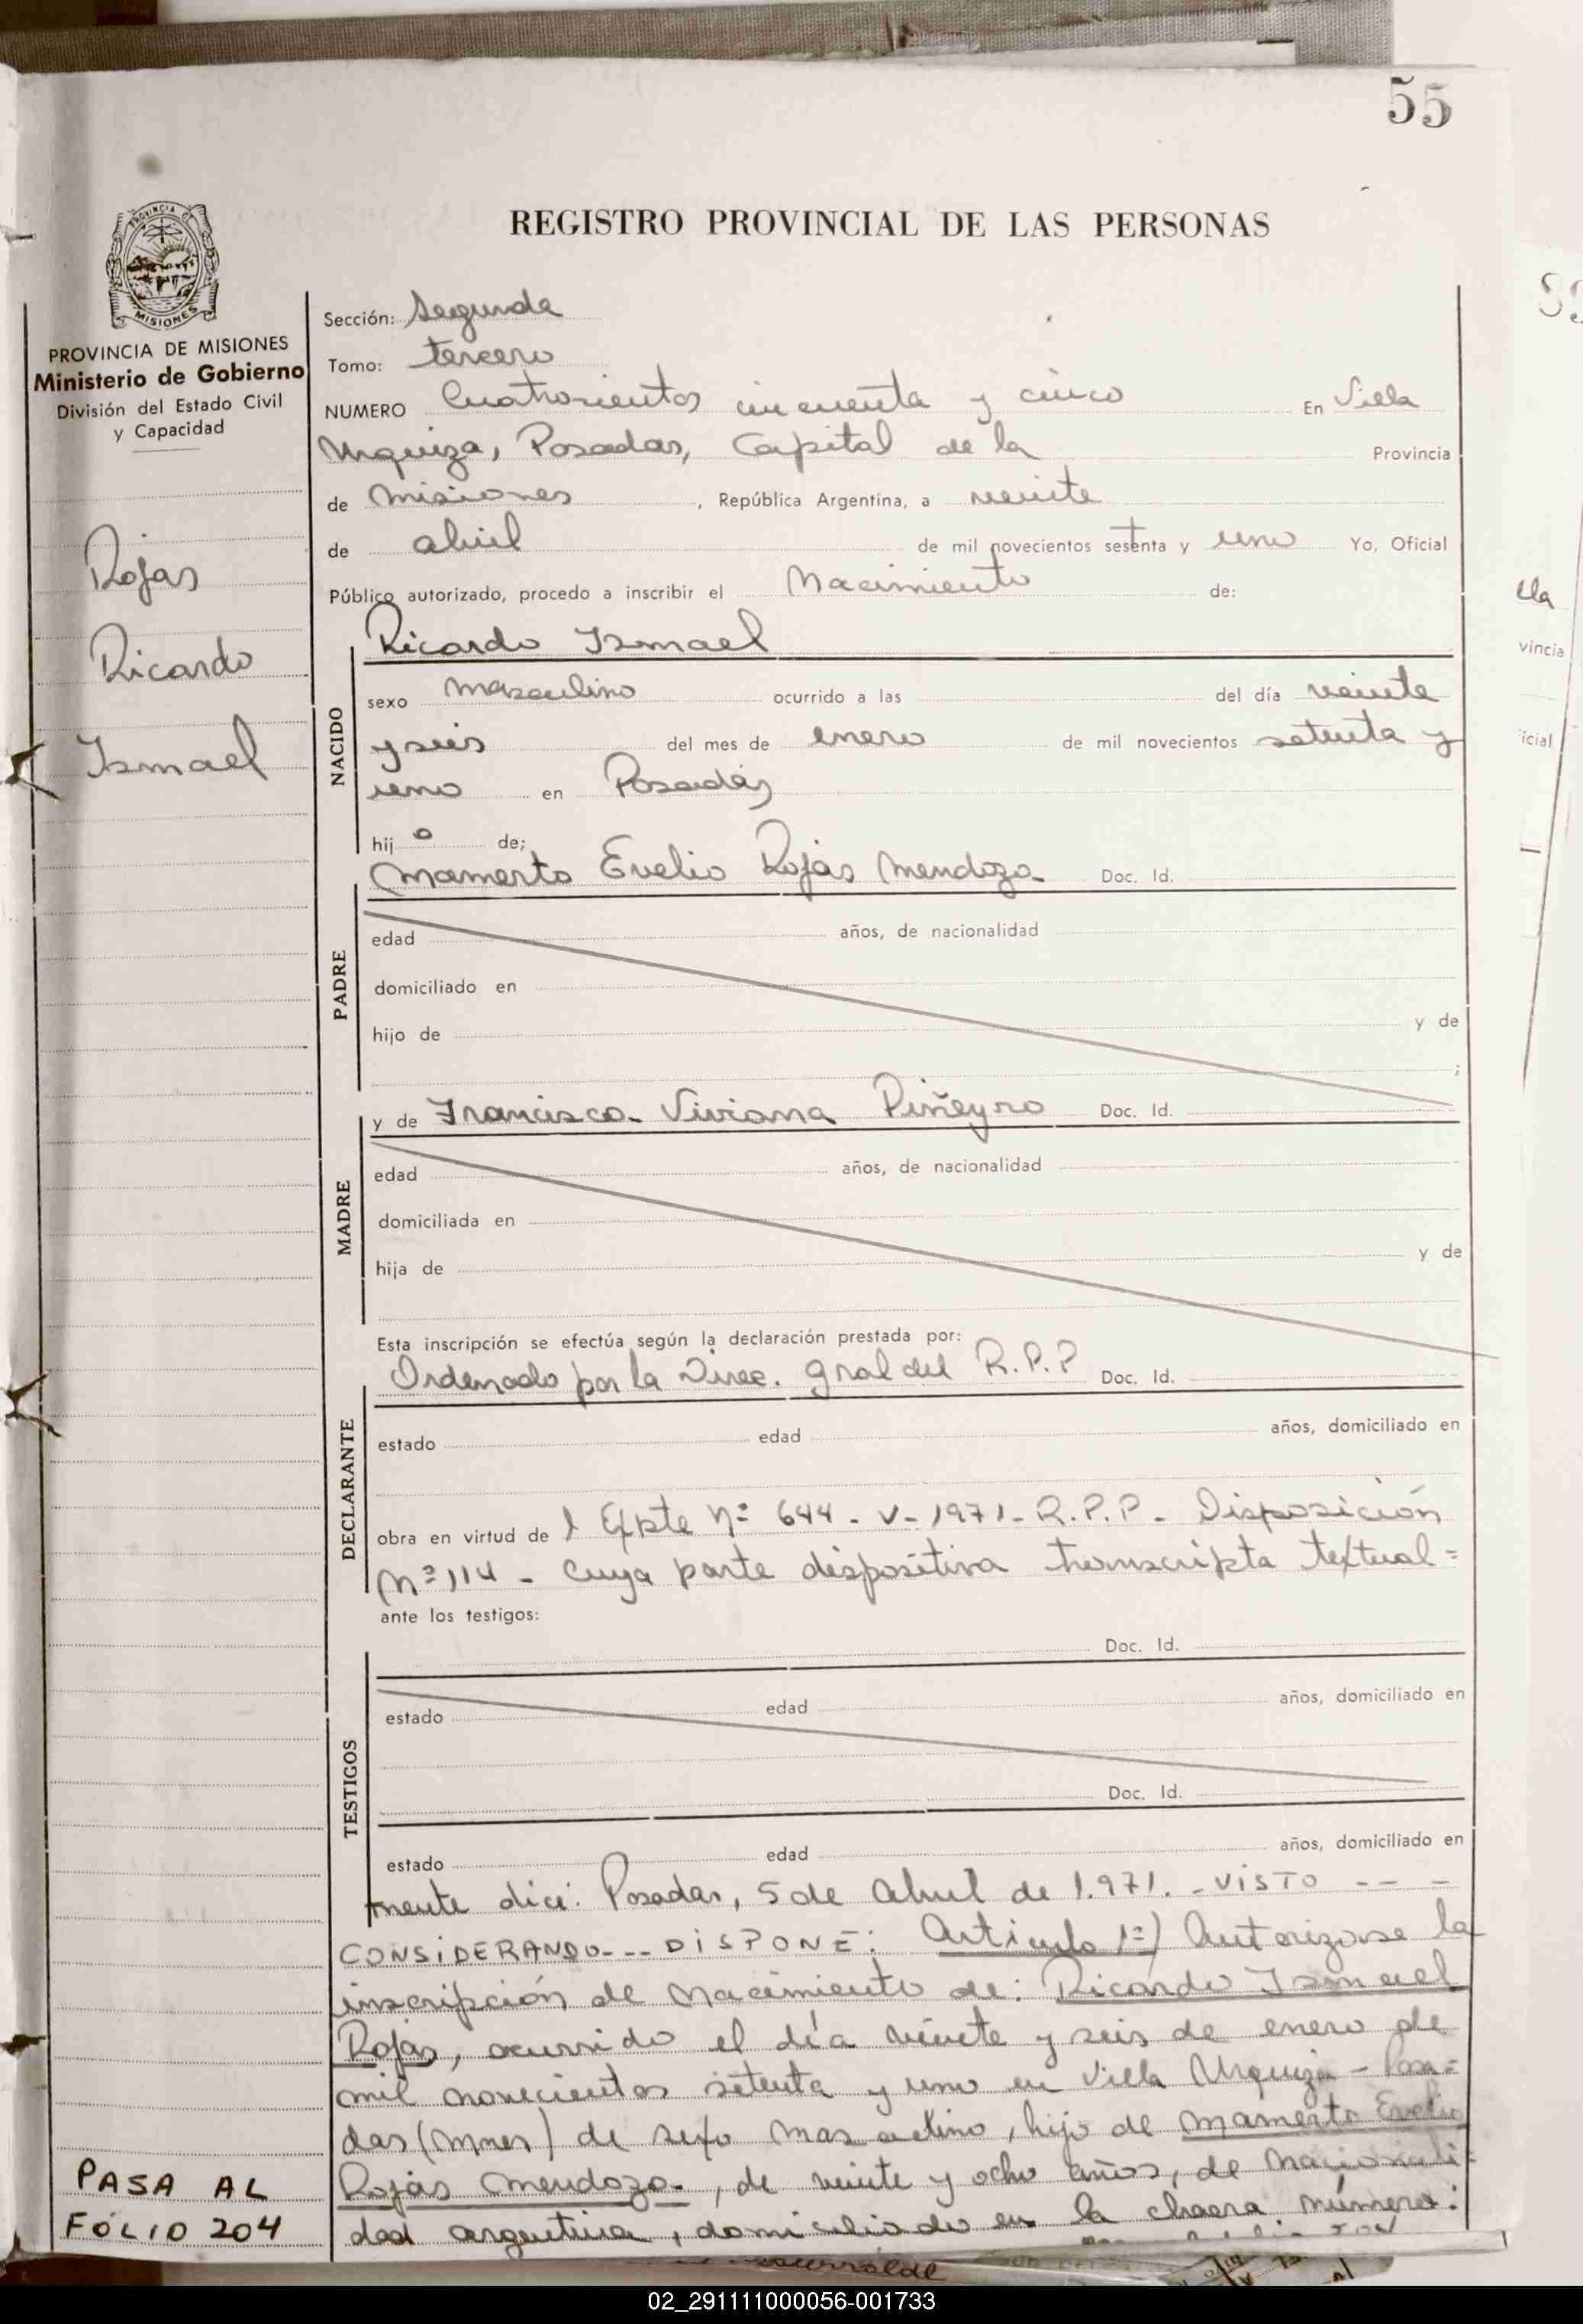 55
REGISTRO PROVINCIAL DE LAS PERSONAS
PROVINCIA DE MISIONES
Ministerio de Gobierno
División del Estado Civil
y Capacidad
Rojas
Ricardo
Ismael
Sección: Segunda
Tomo: tercero
NUMERO Cuatrocientos cincuenta y cinco En Villa
Urquiza, Posadas, Capital de la Provincia
de Misiones, República Argentina, a veinte
de abril de mil novecientos setenta y uno Yo, Oficial
Público autorizado, procedo a inscribir el Nacimiento de:
NACIDO
Ricardo Ismael
sexo masculino ocurrido a las del día veinte
y seis del mes de enero de mil novecientos setenta y
uno en Posadas
hijo de;
PADRE
Mamerto Evelio Rojas Mendoza Doc. Id.
edad años, de nacionalidad
domiciliado en
hijo de y de
;
MADRE
y de Francisca Viviana Piñeyro Doc. Id.
edad años, de nacionalidad
domiciliada en
hija de y de
DECLARANTE
Esta inscripción se efectúa según la declaración prestada por:
Ordenado por la Direc. Gral del R.P.P Doc. Id.
estado edad años, domiciliado en
obra en virtud del Expte Nº 644 - V - 1971 - R.P.P. - Disposición
Nº 114 - cuya parte dispositiva transcripta textual=
ante los testigos:
TESTIGOS
Doc. Id.
estado edad años, domiciliado en
Doc. Id.
estado edad años, domiciliado en
mente dice: Posadas, 5 de Abril de 1.971. - VISTO -- -
CONSIDERANDO --- DISPONE: Artículo 1º) Autorizase la
inscripción de nacimiento de: Ricardo Ismael
Rojas, ocurrido el día veinte y seis de enero de
mil novecientos setenta y uno en Villa Urquiza - Posa=
das (Mnes) de sexo masculino, hijo de Mamerto Evelio
Rojas Mendoza, de veinte y ocho años, de nacionali=
dad argentina, domiciliado en la chacra número:
PASA AL
FOLIO 204
lla
vincia
icial
02_291111000056-001733